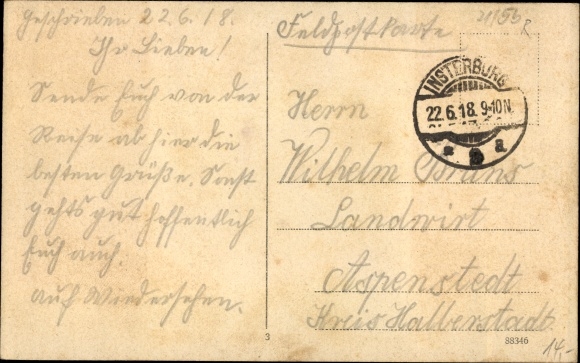 geschrieben 22.6.18.
Ihr Lieben!
Sende Euch von der
Reise ab hier die
besten Grüße. Sonst
gehts gut hoffentlich
Euch auch.
Auf Wiedersehen.
Feldpostkarte
INSTERBURG
22.6.18. 9-10N
* a
Herrn
Wilhelm Bruns
Landwirt
Aspenstedt
Kreis Halberstadt
3
88346
14.